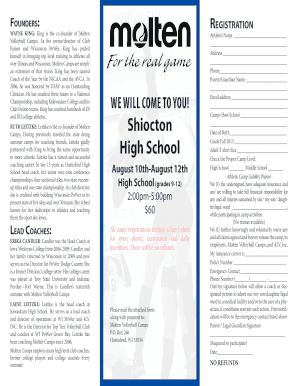 FOUNDERS:
WAYNE KING: King is the co-founder of Molten
Volleyball Camps. As the owner/director of Club
Fusion and Wisconsin IWWe, King has prided
himself in bringing top level training to athletes all
over Illinois and Wisconsin. Molten Camps are simply
an extension of that vision. King has been named
Coach of the Year by the NJCAA and the AVCA. In
2006, he was honored by USAV as an Outstanding
Clinician. He has coached three teams to a National
Championship, including Kishwaukee College and his
Club Fusion teams. King has coached hundreds of DI
and DII college athletes.
RUTH LEITZKE: Leitzke is the co-founder of Molten
Camps. Having previously traveled the state doing
summer camps for coaching friends, Leitzke gladly
partnered with King to bring the same opportunity
to more schools. Leitzke has a varied and successful
coaching career. In her 15 years as Hortonville High
School head coach, her teams won nine conference
championships, four sectional titles, two state runner-
up titles and one state championship. As club director,
she is credited with building Wisconsin Power to its
present state of five sites and over 30 teams. She is best
known for her dedication to athletes and teaching
them the sport she loves.
LEAD COACHES:
ERIKA CANDLER: Candler was the Head Coach at
Iowa Wesleyan College from 2006-2009. Candler and
her family returned to Wisconsin in 2009 and now
serves as the Director for IWWe Dodge County. She
is a former Division I college setter. Her college career
was played at Troy State University and Indiana/
Purdue--Fort Wayne. This is Candler's sixteenth
summer with Molten Volleyball Camps.
LAINE LEITZKE: Leitzke is the head coach at
Kewaskum High School. He serves as a local coach
and director of operations at WI IWWe and 4LV
INC. He is the Director for Top Tier Volleyball Club
and coaches at WI IWWe Green Bay. Leitzke has
been coaching Molten Camps since 2006.
Molten Camps employs many high level club coaches,
former college players and college coaches every
summer.
molten
For the real game
WE WILL COME TO YOU!
Shiocton
High School
August 10th-August 12th
High School (grades 9-12)
2:00pm-5:00pm
$60
All camp registrations include a free t-shirt
for every player, instruction and daily
incentives. There will be no refunds.
Please mail the attached form
along with payment to:
Molten Volleyball Camps
P.O. Box 246
Hortonville, WI 53036
REGISTRATION
Athlete's Name
Address
Phone
Parent/Guardian Name
Email address
Camp (Host School)
Date of Birth
Grade Fall of 2015
Adult T-shirt Size
Check the Proper Camp Level:
High School Middle School
Athletic Camp Liability Waiver
We (I) the undersigned have adequate insurance and
are willing to take full financial responsibility for
any and all injuries sustained by our" my son/ daugh-
ter legal ward
while participating in camp activities.
(No insurance refused)
We (I) further knowingly and voluntarily waive any
and all claims against and forever release the camp, its
employees, Molten Volleyball Camps, and 4LV, Inc.
My insurance carrier is
Policy Number
Emergency Contact
Phone Number ( )
Our my signature below will allow a coach or des-
ignated person to admit our my son/daughter legal
ward to a medical facility and/or to the care of a phy-
sician, if conditions warrant such action. Prior notifi-
cation will be to the emergency contact listed above.
Parent / Legal Guardian Signature
(Required to participate)
Date
NO REFUNDS